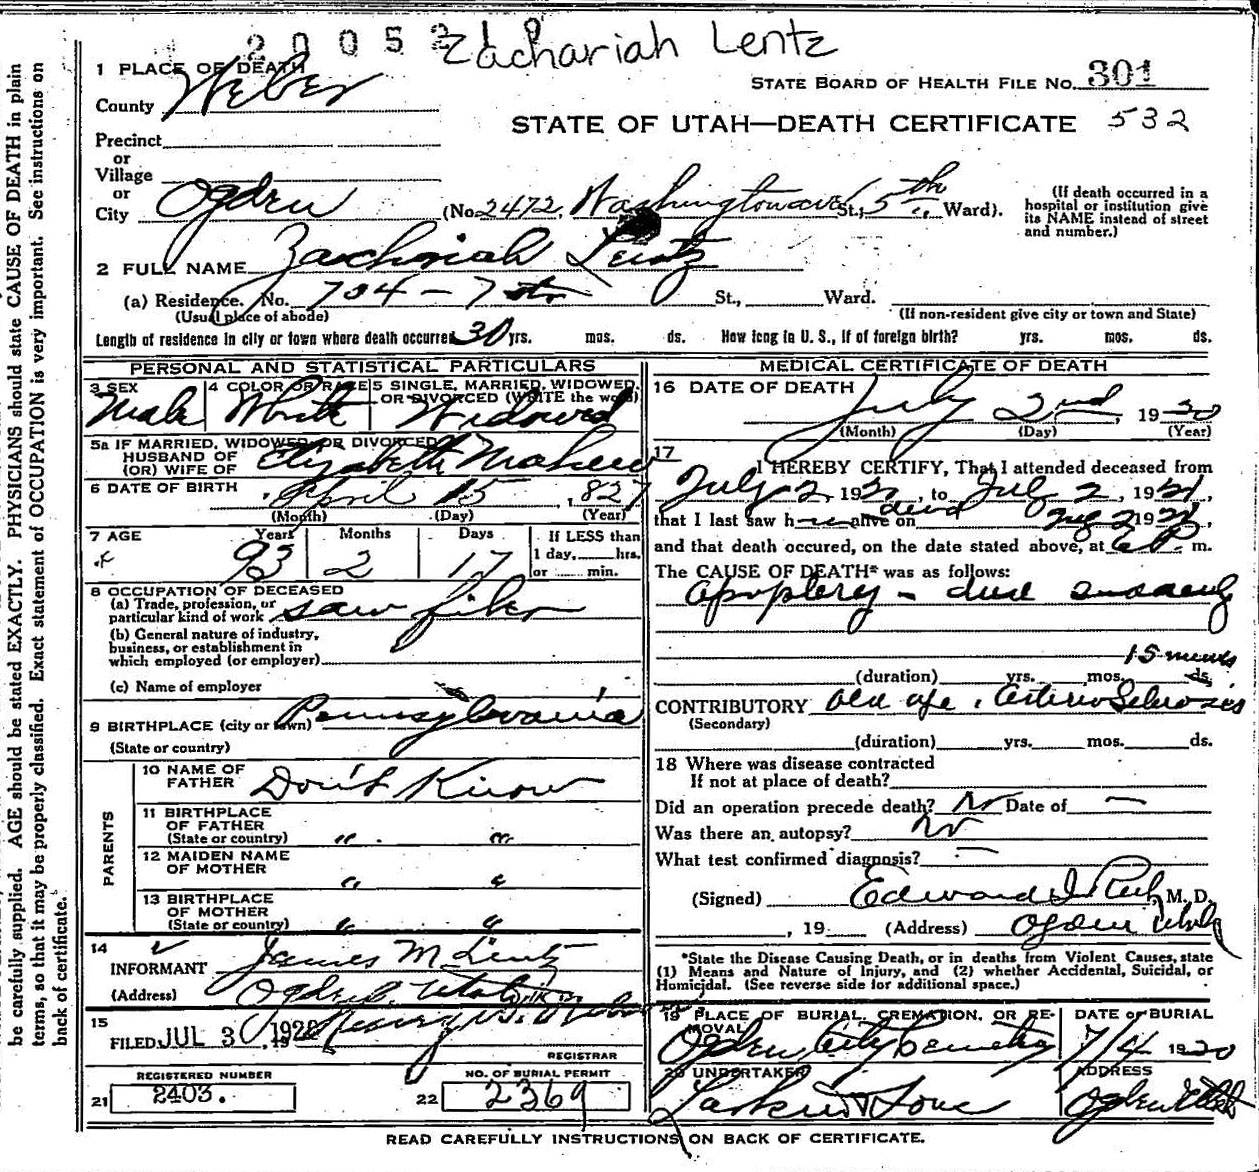 20052
Zachariah Lentz
1 PLACE OF DEATH
County Weber
STATE BOARD OF HEALTH FILE No. 301
STATE OF UTAH—DEATH CERTIFICATE 532
Precinct
or
Village
or
City Ogden (No. 2472 Washington ave St., 5th Ward).
(If death occurred in a
hospital or institution give
its NAME instead of street
and number.)
2 FULL NAME Zachariah Lentz
(a) Residence. No. 704 - 7 St., Ward.
(Usual place of abode) (If non-resident give city or town and State)
Length of residence in city or town where death occurred 30 yrs. mos. ds. How long in U. S., if of foreign birth? yrs. mos. ds.
PERSONAL AND STATISTICAL PARTICULARS
3 SEX 4 COLOR OR RACE 5 SINGLE, MARRIED, WIDOWED,
OR DIVORCED (WRITE the word)
Male White Widowed
5a IF MARRIED, WIDOWED, OR DIVORCED
HUSBAND OF
(OR) WIFE OF Elizabeth
6 DATE OF BIRTH April 15, 1827
(Month) (Day) (Year)
7 AGE Years Months Days If LESS than
1 day, hrs.
or min.
93 2 17
8 OCCUPATION OF DECEASED
(a) Trade, profession, or
particular kind of work saw filer
(b) General nature of industry,
business, or establishment in
which employed (or employer)
(c) Name of employer
9 BIRTHPLACE (city or town) Pennsylvania
(State or country)
PARENTS
10 NAME OF
FATHER Don't Know
11 BIRTHPLACE
OF FATHER
(State or country) " "
12 MAIDEN NAME
OF MOTHER " "
13 BIRTHPLACE
OF MOTHER
(State or country) " "
14
INFORMANT James M Lentz
(Address) Ogden Utah
15
FILED JUL 3 1920
REGISTRAR
REGISTERED NUMBER
21 2403.
NO. OF BURIAL PERMIT
22 2369
MEDICAL CERTIFICATE OF DEATH
16 DATE OF DEATH
July 2nd, 1920
(Month) (Day) (Year)
17
I HEREBY CERTIFY, That I attended deceased from
July 2, 1920, to July 2, 19
that I last saw h alive on dead July 2 19
and that death occured, on the date stated above, at P. m.
The CAUSE OF DEATH* was as follows:
Apoplexy - died suddenly
15 minutes
(duration) yrs. mos. ds.
CONTRIBUTORY old age, Arterio Sclerosis
(Secondary)
(duration) yrs. mos. ds.
18 Where was disease contracted
If not at place of death?
Did an operation precede death? No Date of —
Was there an autopsy? No
What test confirmed diagnosis? —
(Signed) Edward I. Rich, M. D.
, 19 (Address) Ogden Utah
*State the Disease Causing Death, or in deaths from Violent Causes, state
(1) Means and Nature of Injury, and (2) whether Accidental, Suicidal, or
Homicidal. (See reverse side for additional space.)
19 PLACE OF BURIAL, CREMATION, OR RE-
MOVAL
DATE OF BURIAL
Ogden City Cemetery 7/4 1920
20 UNDERTAKER ADDRESS
Larkin & Sons Ogden Utah
READ CAREFULLY INSTRUCTIONS ON BACK OF CERTIFICATE.
be carefully supplied. AGE should be stated EXACTLY. PHYSICIANS should state CAUSE OF DEATH in plain
terms, so that it may be properly classified. Exact statement of OCCUPATION is very important. See instructions on
back of certificate.